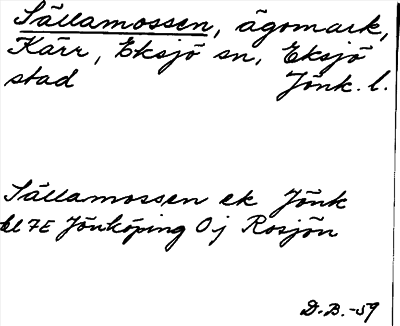 Sällamossen, ägomark,
Kärr, Eksjö sn, Eksjö
stad Jönk. l.
Sällamossen ek Jönk
bl 7E Jönköping Oj Rosjön
D.B.-59